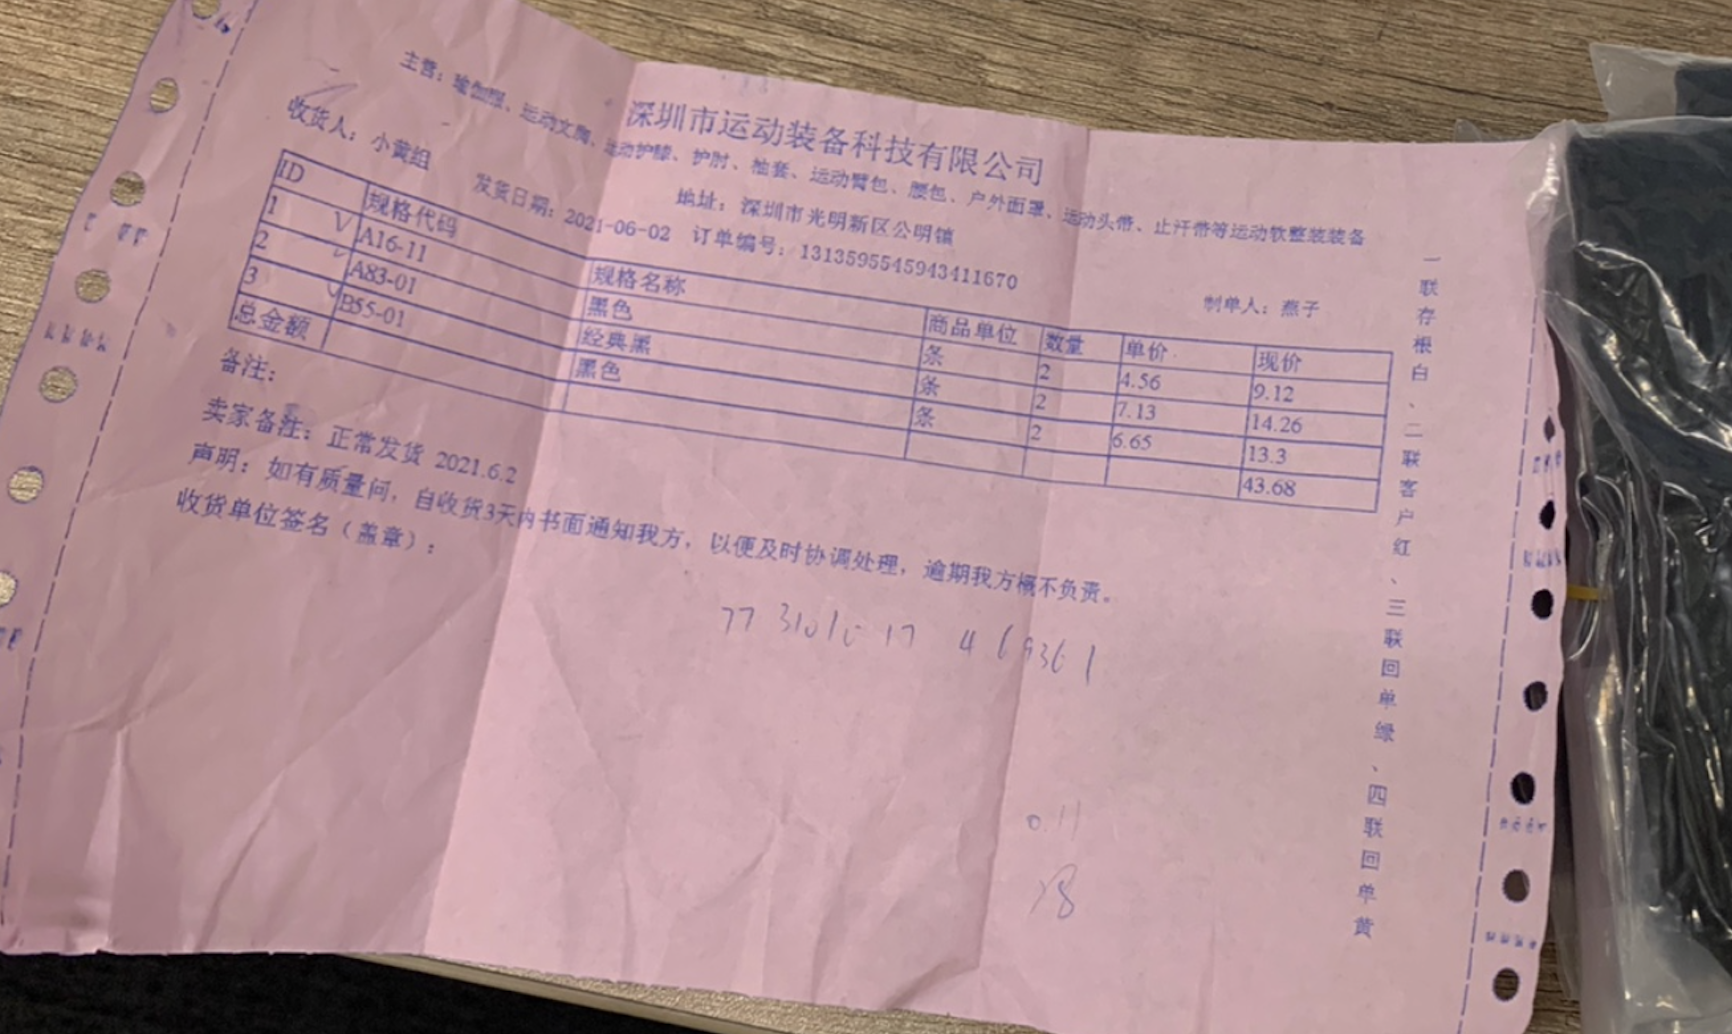 深圳市运动装备科技有限公司
主营：瑜伽服、运动文胸、运动护膝、护肘、袖套、运动臂包、腰包、户外面罩、运动头带、止汗带等运动软整装装备
地址：深圳市光明新区公明镇
收货人：小黄组 发货日期：2021-06-02 订单编号：1313595545943411670 制单人：燕子
ID 规格代码 规格名称 商品单位 数量 单价 现价
1 A16-11 黑色 条 2 4.56 9.12
2 A83-01 经典黑 条 2 7.13 14.26
3 B55-01 黑色 条 2 6.65 13.3
总金额 43.68
备注：
卖家备注：正常发货 2021.6.2
声明：如有质量问，自收货3天内书面通知我方，以便及时协调处理，逾期我方概不负责。
收货单位签名（盖章）：
0.11
一联存根白、二联客户红、三联回单绿、四联回单黄